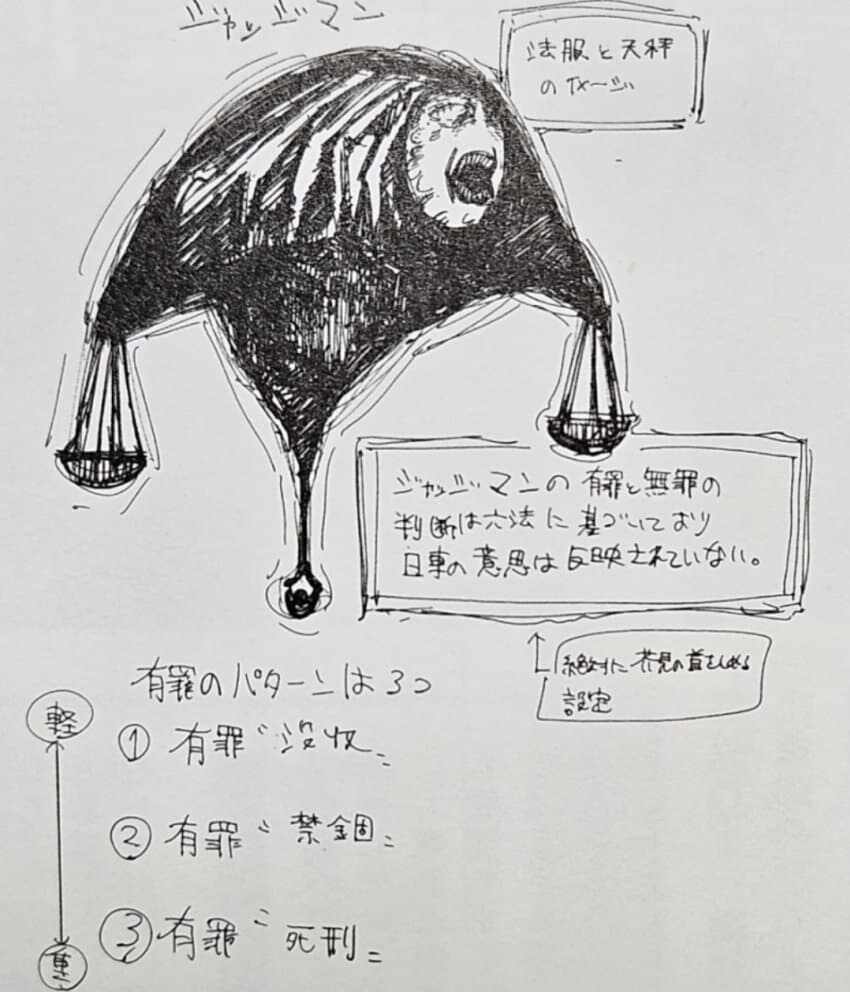 ジャッジマン
法服と天秤
のイメージ
ジャッジマンの有罪と無罪の
判断は六法に基づいており
日車の意思は反映されていない。
絶対に芥見の首をしめる
設定
有罪のパターンは3つ
軽
① 有罪“没収„
② 有罪“禁錮„
③ 有罪“死刑„
重